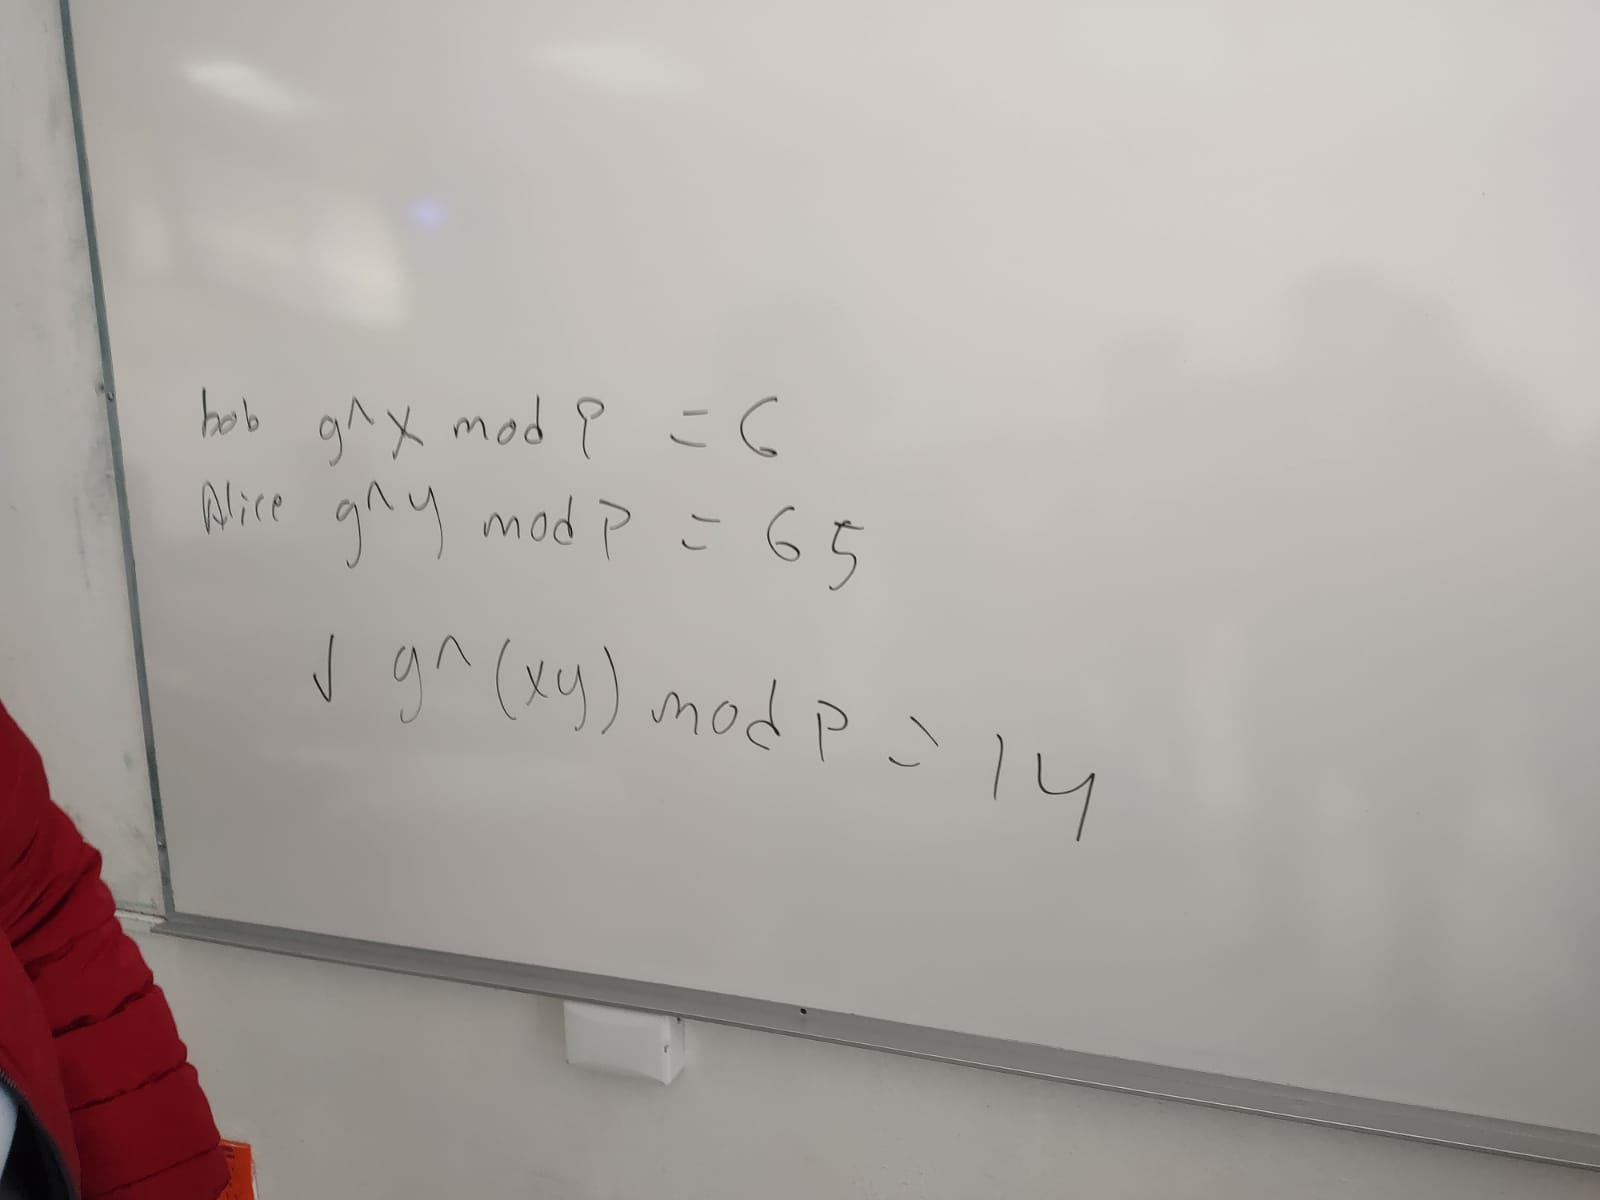 bob g^x mod P = 6
Alice g^y mod P = 65
√ g^(xy) mod P = 14